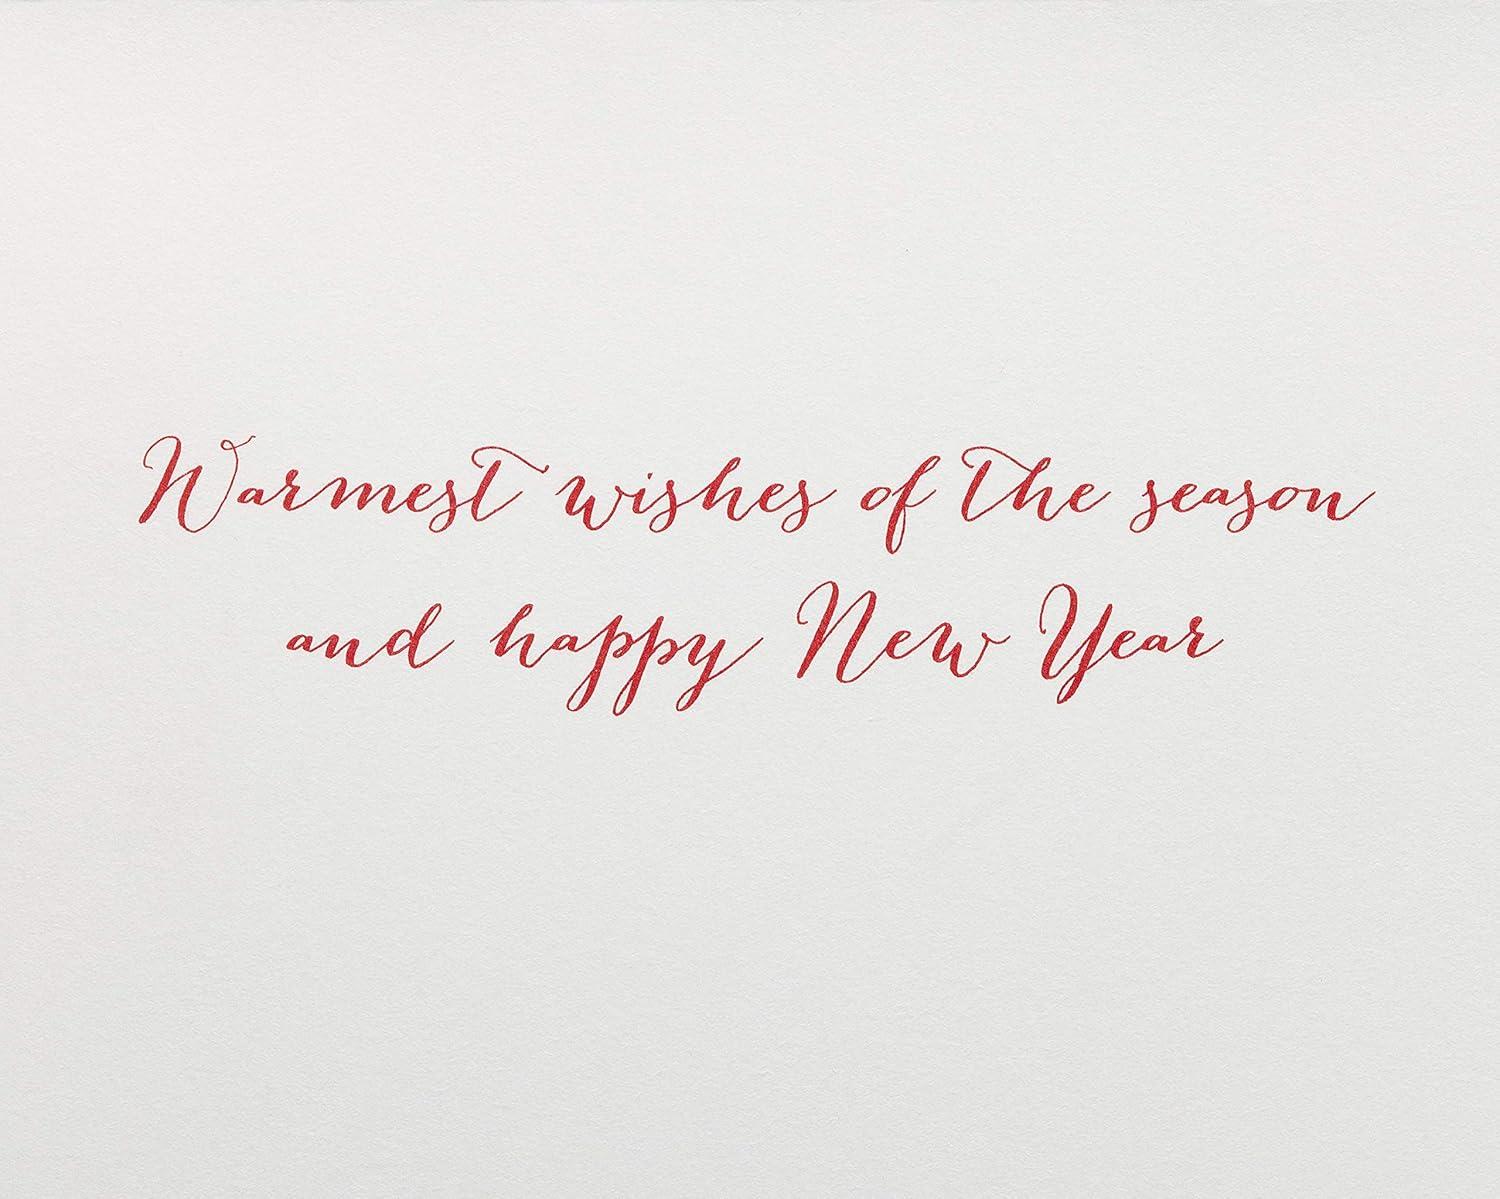 Warmest wishes of the season
and happy New Year